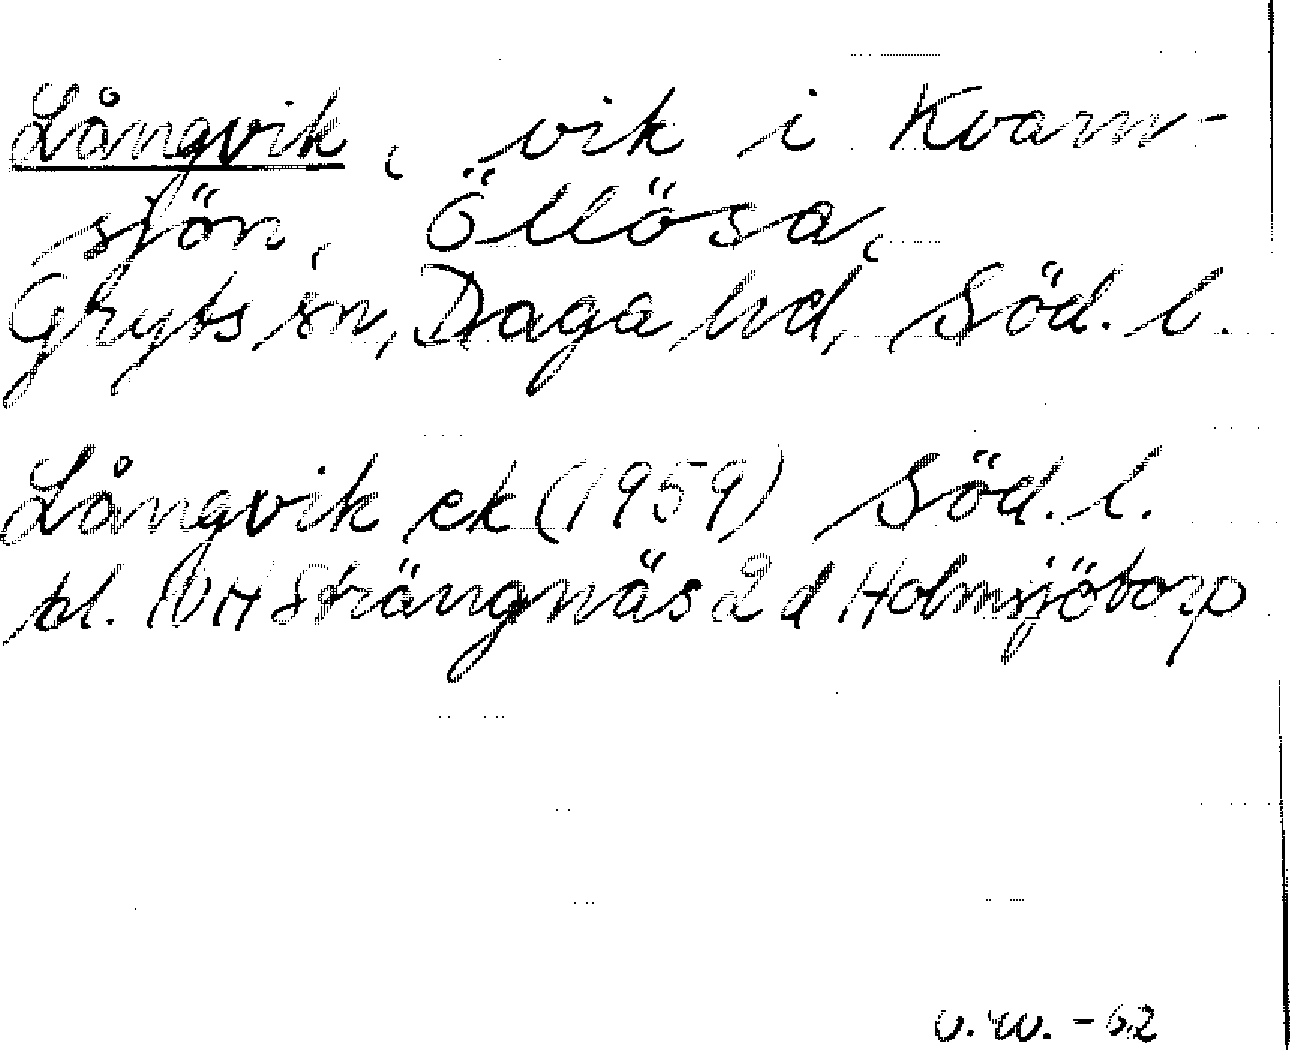 Långvik, vik i Kvarn-
sjön, Öllösa,
Gryts sn, Daga hd, Söd. l.
Långvik ek (1959) Söd. l.
bl. 10 H Strängnäs 2 d Holmsjötorp
v.w. - 62